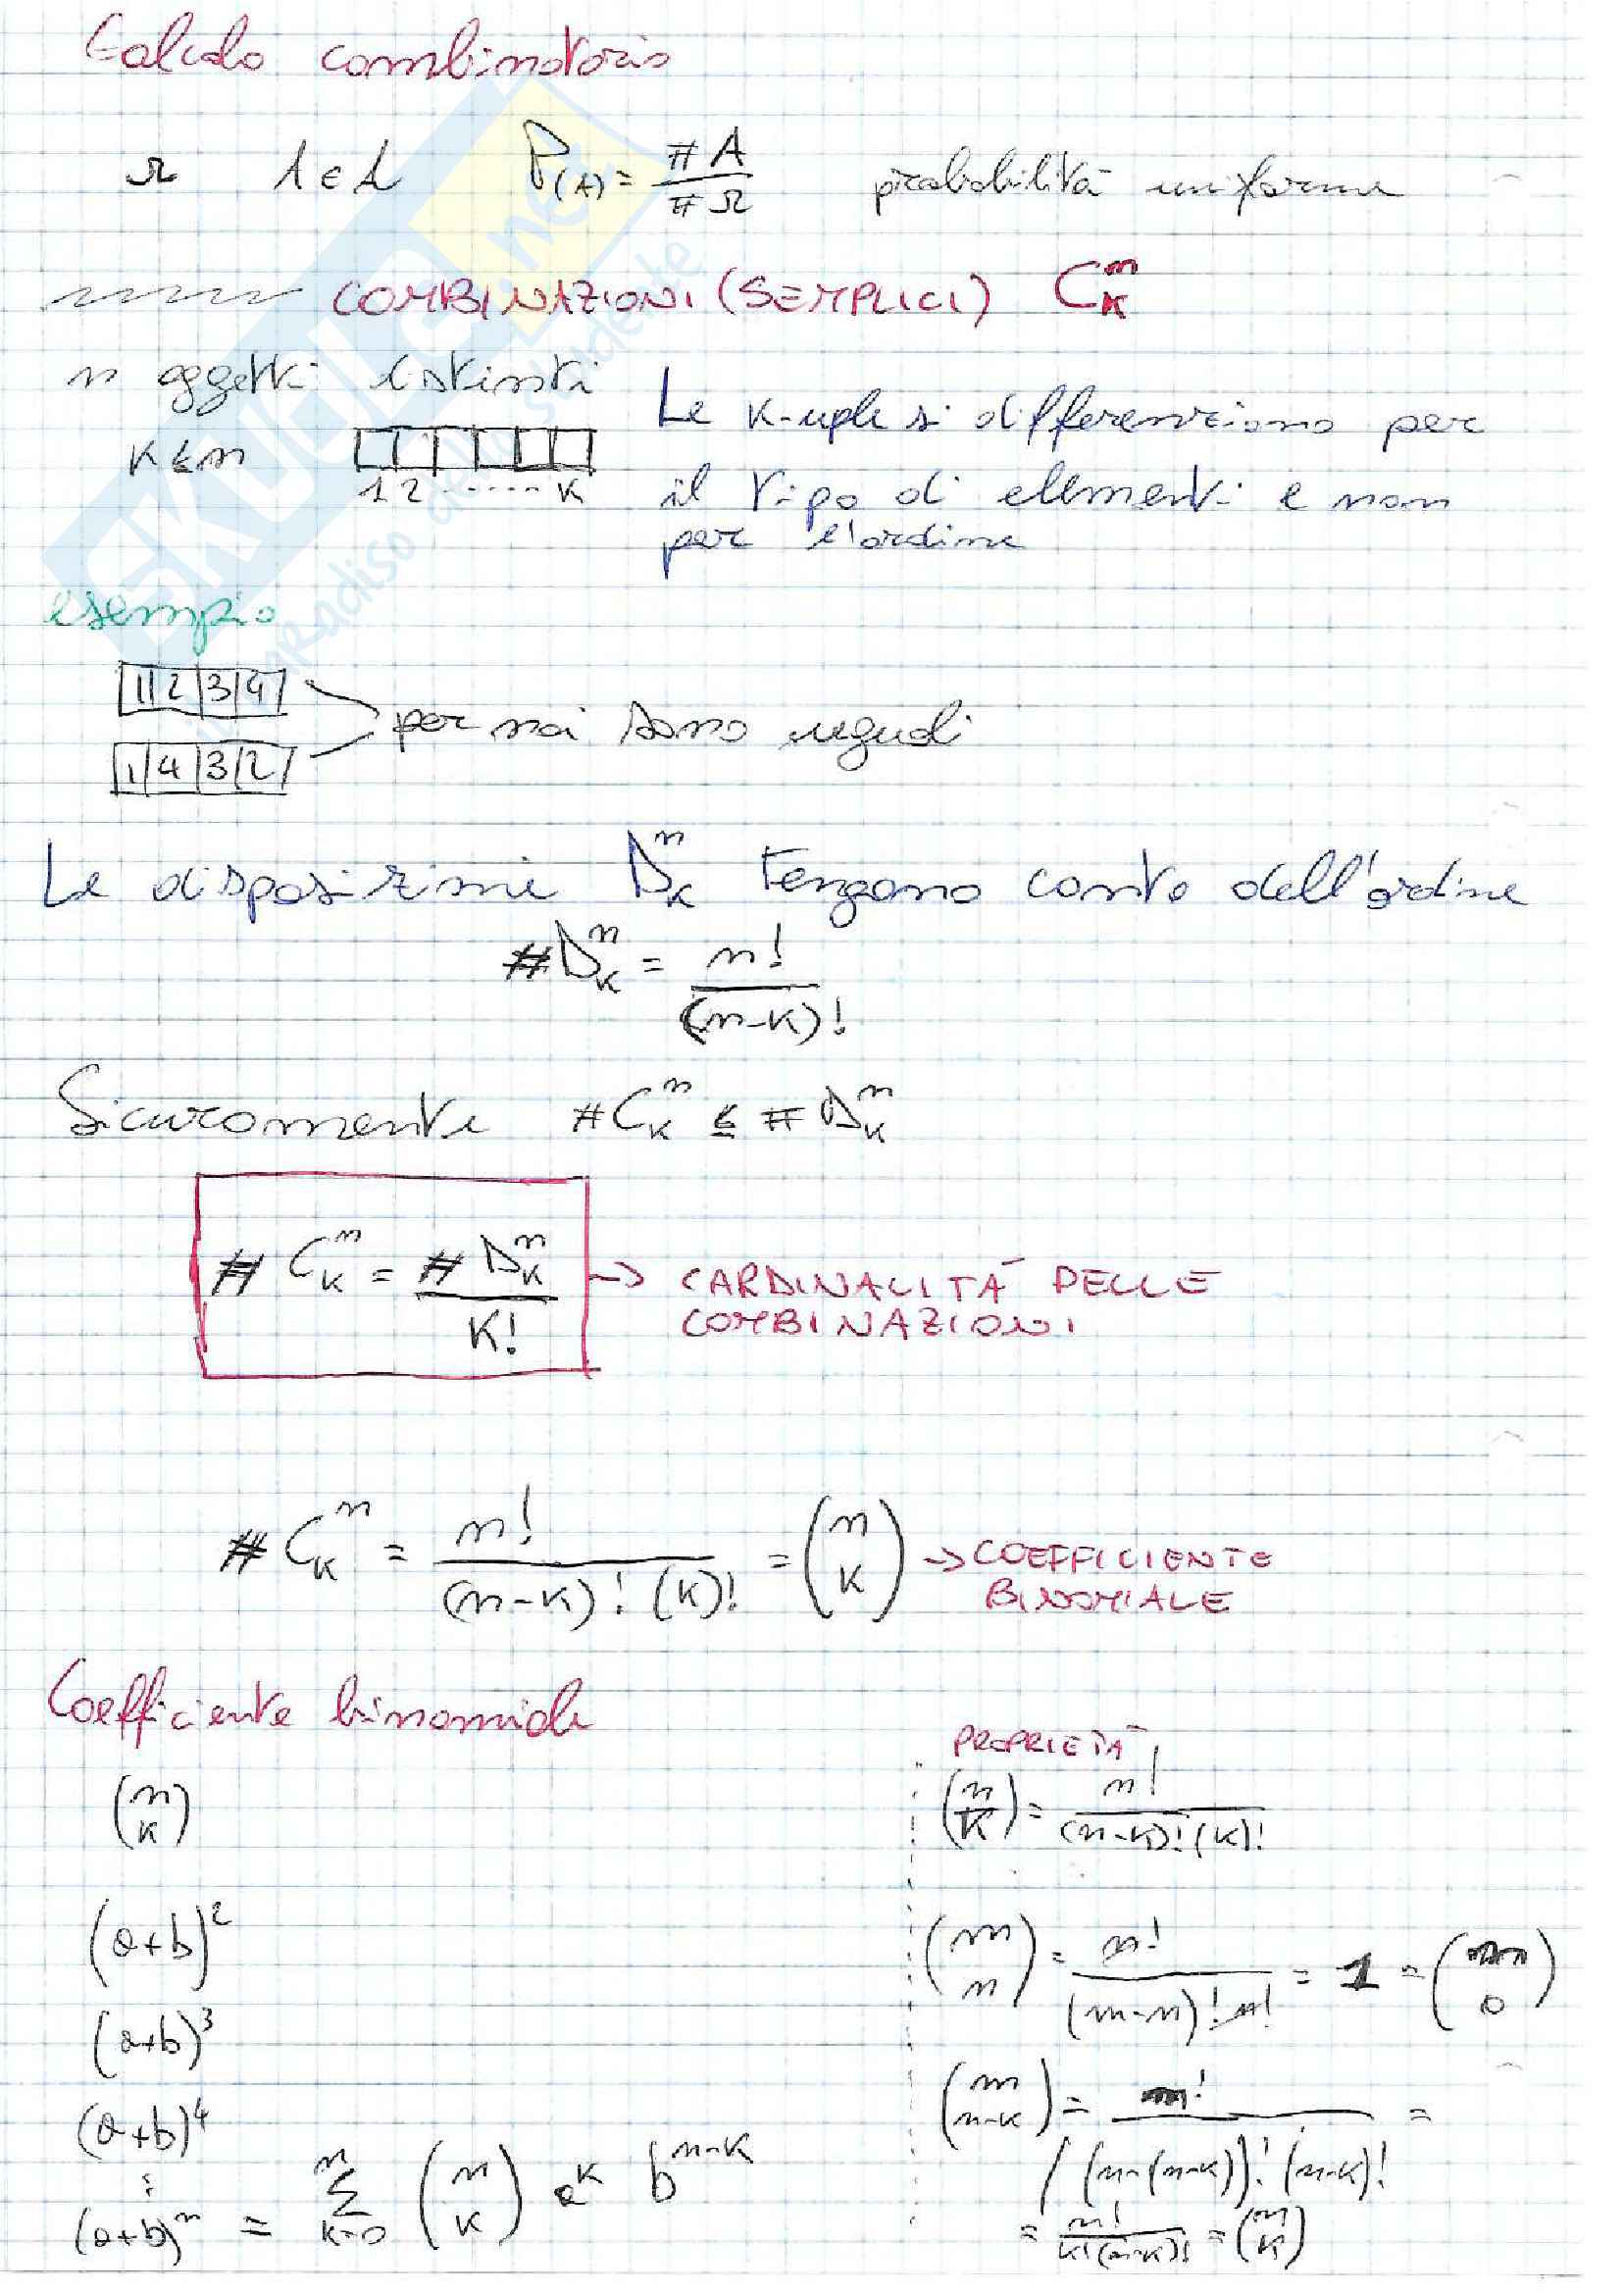 Calcolo combinatorio
Ω A ∈ A P(A) = #A / #Ω probabilità uniforme
COMBINAZIONI (SEMPLICI) C_K^n
n oggetti distinti
K ≤ n
1 2 ...... K
Le K-uple si differenziano per
il tipo di elementi e non
per l'ordine
esempio
1 2 3 4
1 4 3 2
per noi sono uguali
Le disposizioni D_K^n tengono conto dell'ordine
#D_K^n = n! / (n-K)!
Sicuramente #C_K^n ≤ #D_K^n
#C_K^n = #D_K^n / K! → CARDINALITÀ DELLE
COMBINAZIONI
#C_K^n = n! / (n-K)! (K)! = (n K) → COEFFICIENTE
BINOMIALE
Coefficiente binomiale
(n K)
(a+b)^2
(a+b)^3
(a+b)^4
⋮
(a+b)^n = Σ_{K=0}^n (n K) a^K b^{n-K}
PROPRIETÀ
(n K) = n! / (n-K)! (K)!
(n n) = n! / (n-n)! n! = 1 = (n 0)
(n n-K) = n! / (n-(n-K))! (n-K)! =
= n! / K! (n-K)! = (n K)
SKUOLA.net
il paradiso dello studente